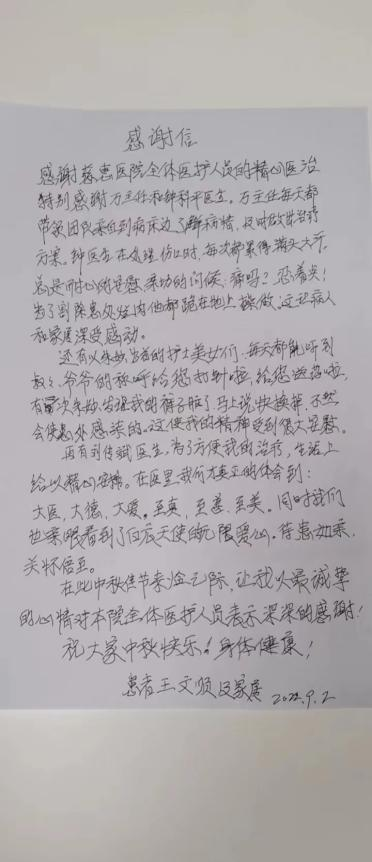 感谢信
感谢慈惠医院全体医护人员的精心医治
特别感谢万主任和钟科平医生。万主任每天都
带领团队亲自到病床边了解病情,及时做出治疗
方案。钟医生在处理伤口时,每次都累得满头大汗。
总是耐心的安慰亲切的问候,痛吗?忍着点!
为了到除患处位内他都跪在地上操做。这让病人
和家属深受感动。
还有以朱敏为首的护士美女们,每天都能听到
叔々爷爷的称呼给您打针啦,给您送药啦,
有一次朱敏发现我的裤子脏了,马上说快换第,不然
会使患处感染的。这使我的精神受到很大安慰。
再有到传斌医生,为了方便我的治疗,生活上
给以精心安排。在医里我们才真正的体会到:
大医,大德,大爱。至真,至善,至美。同时我们
也亲眼看到了白衣天使的无限爱心。待患如亲,
关怀倍至。
在此中秋佳节来临之际,让我以最诚挚
的心情对本院全体医护人员表示深深的感谢!
祝大家中秋快乐!身体健康!
患者王文顺及家属 2022.9.2